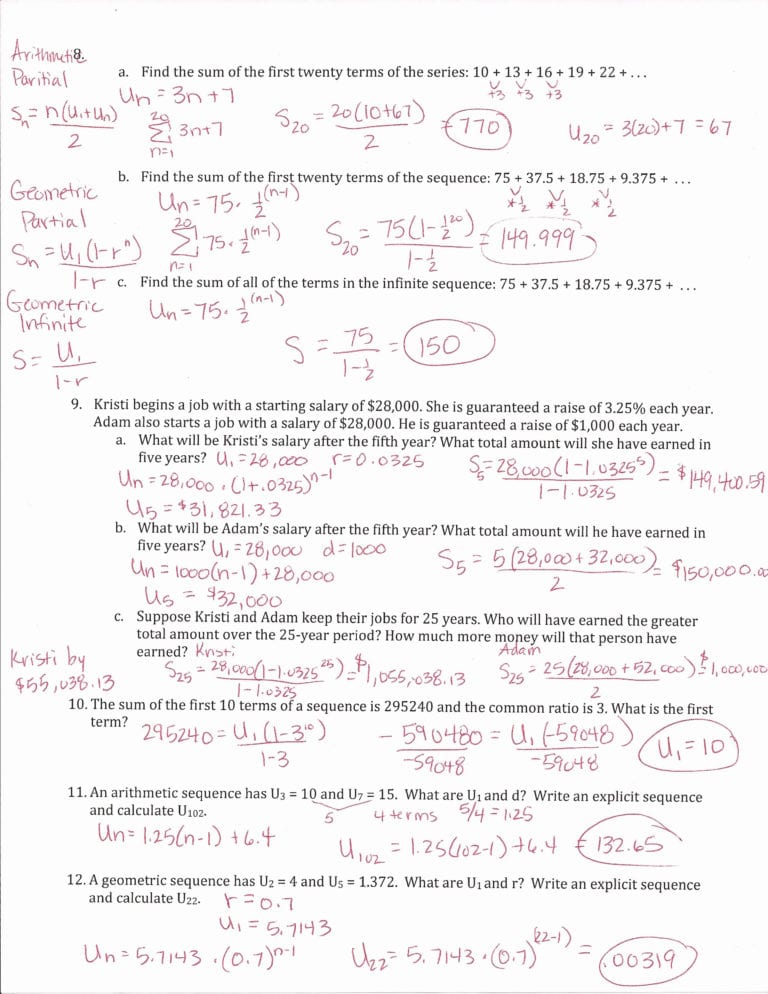 Arithmetic 8.
Paritial
a. Find the sum of the first twenty terms of the series: 10 + 13 + 16 + 19 + 22 + ...
+3 +3 +3
Un = 3n+7
Sn = n(U1+Un) / 2
20 Σ n=1 3n+7
S20 = 20(10+67) / 2 = 770
U20 = 3(20)+7 = 67
b. Find the sum of the first twenty terms of the sequence: 75 + 37.5 + 18.75 + 9.375 + ...
*1/2 *1/2 *1/2
Geometric
Partial
Un = 75 · 1/2^(n-1)
Sn = U1(1-r^n) / 1-r
20 Σ n=1 75 · 1/2^(n-1)
S20 = 75(1-1/2^20) / 1-1/2 = 149.999
c. Find the sum of all of the terms in the infinite sequence: 75 + 37.5 + 18.75 + 9.375 + ...
Geometric
Infinite
Un = 75 · 1/2^(n-1)
S = U1 / 1-r
S = 75 / 1-1/2 = 150
9. Kristi begins a job with a starting salary of $28,000. She is guaranteed a raise of 3.25% each year.
Adam also starts a job with a salary of $28,000. He is guaranteed a raise of $1,000 each year.
a. What will be Kristi's salary after the fifth year? What total amount will she have earned in
five years? U1 = 28,000 r=0.0325
Un = 28,000 · (1+.0325)^n-1
S5 = 28,000(1-1.0325^5) / 1-1.0325 = $149,400.59
U5 = $31,821.33
b. What will be Adam's salary after the fifth year? What total amount will he have earned in
five years? U1 = 28,000 d=1000
Un = 1000(n-1)+28,000
S5 = 5(28,000+32,000) / 2 = $150,000.00
U5 = $32,000
c. Suppose Kristi and Adam keep their jobs for 25 years. Who will have earned the greater
total amount over the 25-year period? How much more money will that person have
earned? Kristi Adam
Kristi by
$55,038.13
S25 = 28,000(1-1.0325^25) / 1-1.0325 = $1,055,038.13
S25 = 25(28,000+52,000) / 2 = $1,000,000
10. The sum of the first 10 terms of a sequence is 295240 and the common ratio is 3. What is the first
term? 295240 = U1(1-3^10) / 1-3
-590480 / -59048 = U1(-59048) / -59048
U1 = 10
11. An arithmetic sequence has U3 = 10 and U7 = 15. What are U1 and d? Write an explicit sequence
and calculate U102. 5 4 terms 5/4 = 1.25
Un = 1.25(n-1) + 6.4
U102 = 1.25(102-1)+6.4 = 132.65
12. A geometric sequence has U2 = 4 and U5 = 1.372. What are U1 and r? Write an explicit sequence
and calculate U22. r = 0.7
U1 = 5.7143
Un = 5.7143 · (0.7)^n-1
U22 = 5.7143 · (0.7)^(22-1) = .00319